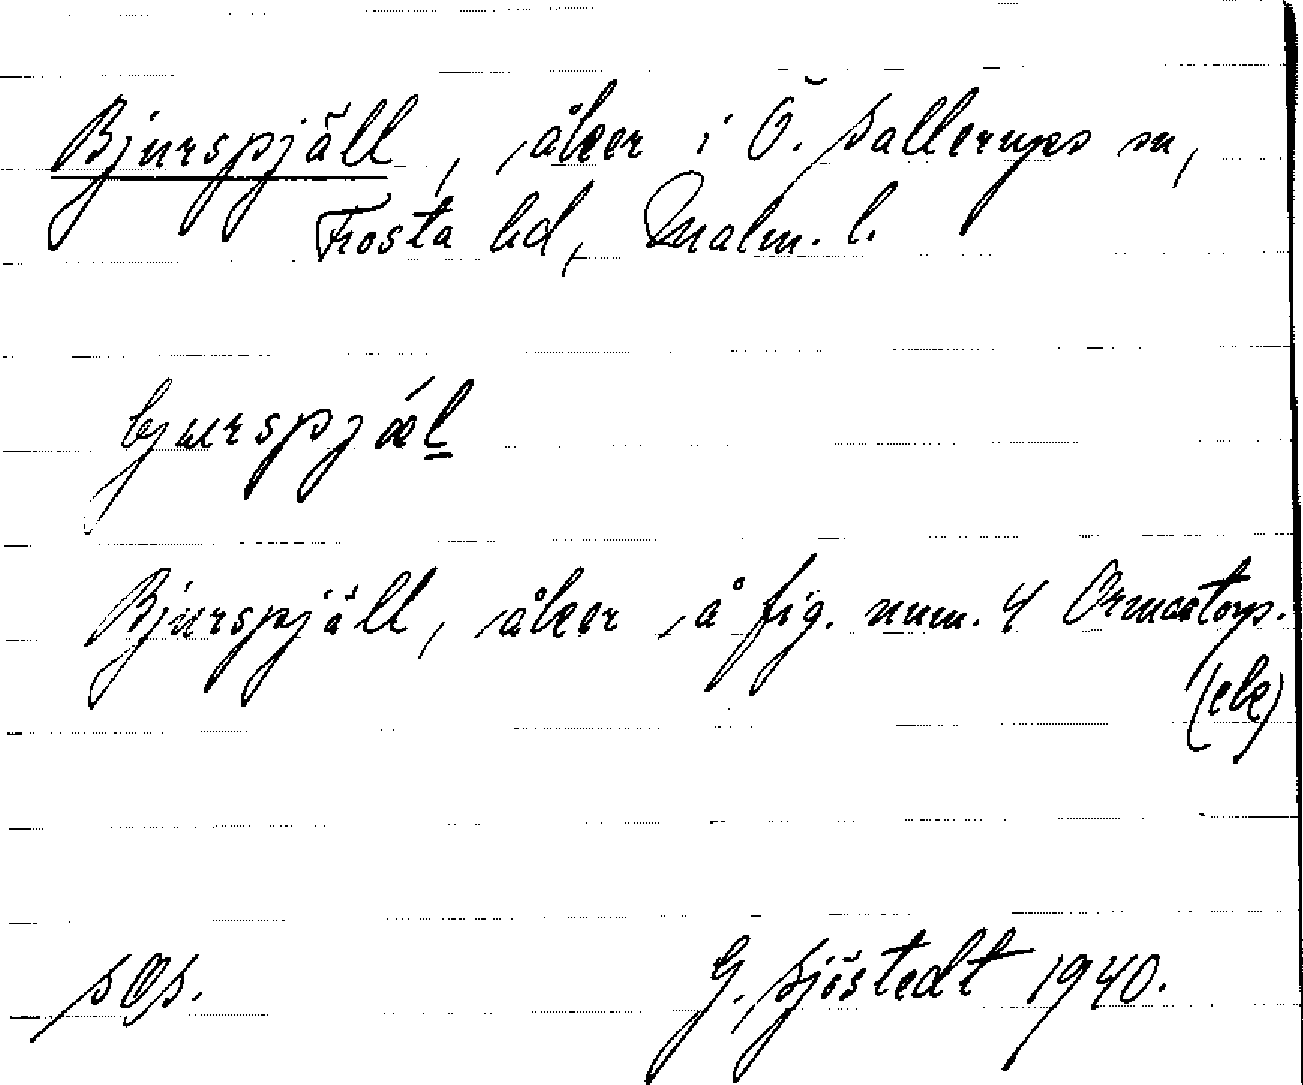 Bjurspjäll, åker i Ö. Sallerups sn,
Frosta hd, Malm. l.
bjurspjǽl
Bjurspjäll, åker å fig. num. 4 Ormatorp.
(ebe)
sGs.
G. Sjöstedt 1940.